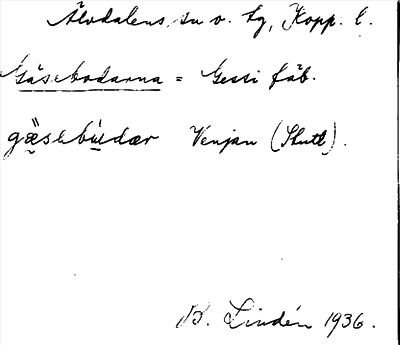 Älvdalens sn o. tg, Kopp. l.
Gåsebodarna = Gessi fäb.
gä̀seḅùdær Venjan (Slutt).
B. Lindén 1936.